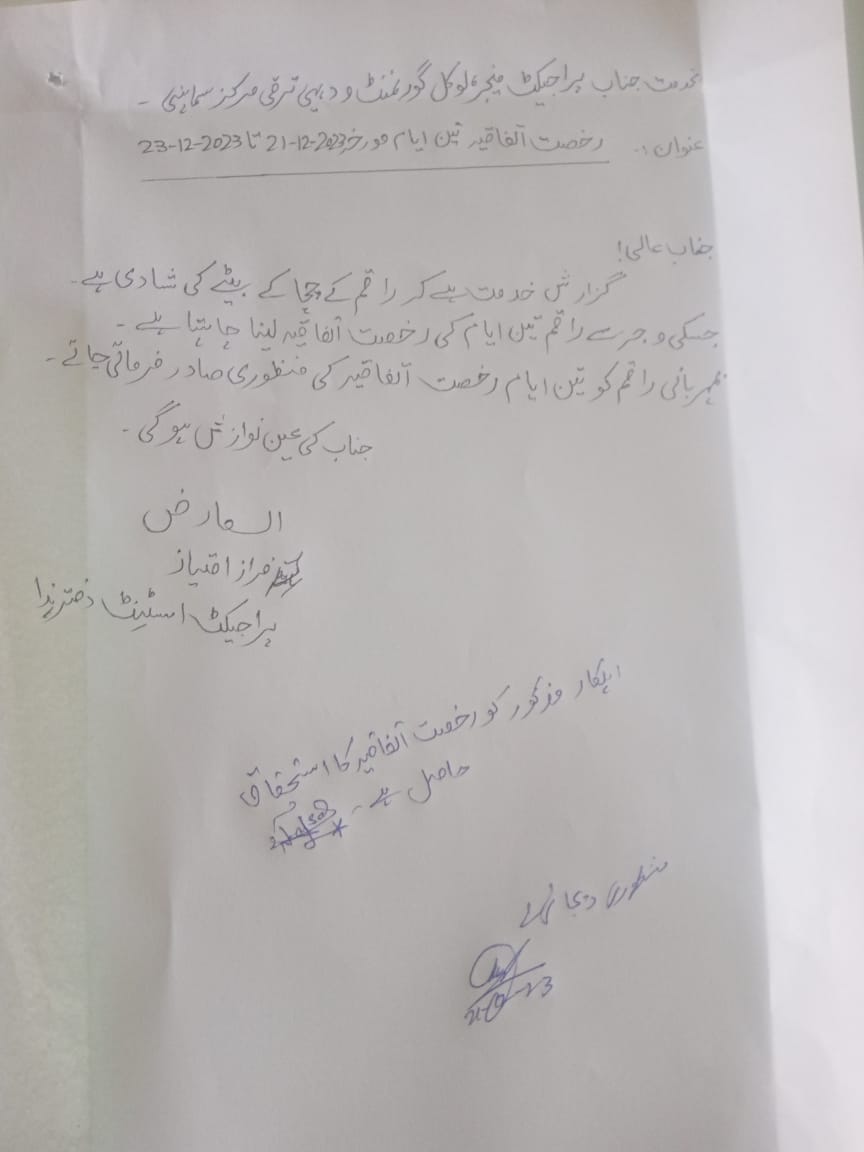 بخدمت جناب پراجیکٹ منیجر، لوکل گورنمنٹ و دیہی ترقی مرکز سماہنی -
عنوان :. رخصت اتفاقیہ تین ایام مورخہ 21-12-2023 تا 23-12-2023
جناب عالی!
گزارش خدمت ہے کہ راقم کے چچا کے بیٹے کی شادی ہے -
جسکی وجہ سے راقم تین ایام کی رخصت اتفاقیہ لینا چاہتا ہے -
مہربانی راقم کو تین ایام رخصت اتفاقیہ کی منظوری صادر فرمائی جائے -
جناب کی عین نوازش ہو گی -
العارض
فراز امتیاز
پراجیکٹ اسٹنٹ دفتر ہذا
اہلکار مذکور کو رخصت اتفاقیہ کا استحقاق
حاصل ہے -
منظوری دیجاتی ہے